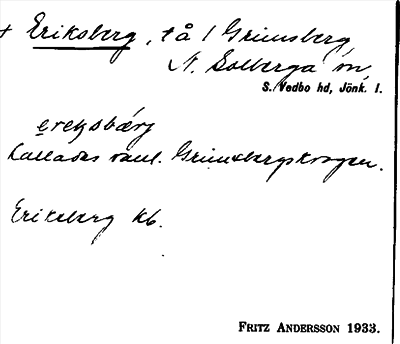 + Eriksberg, tå 1 Grimsberg
N. Solberga sn,
S. Vedbo hd, Jönk. l.
erₑksbærj
Kallades vanl. Grimsbergskrogen.
Eriksberg kb.
FRITZ ANDERSSON 1933.